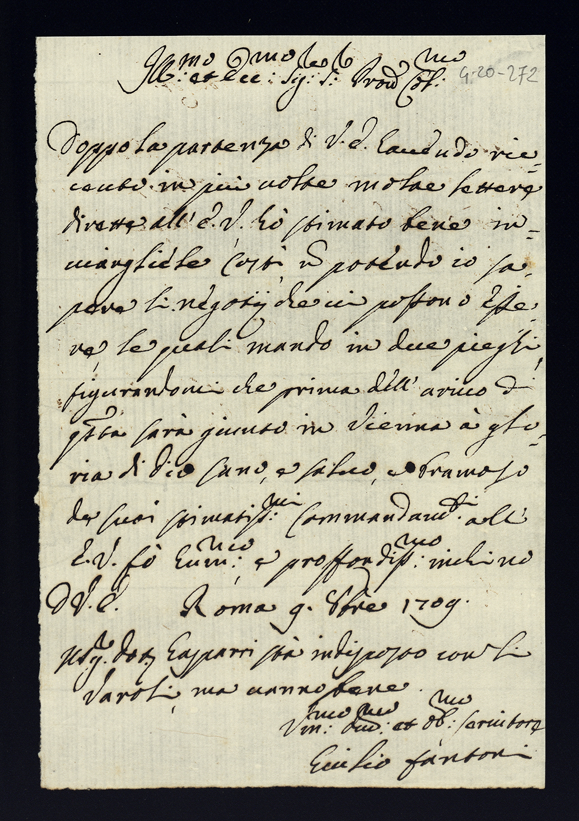 Ill:mo et Ecc:mo Sig:r Sig:r Prõn Col:mo
G-20-272
Doppo la partenza di V.E. havendo rice-
vuto in più volte molte lettere
dirette all'E.V. hò stimato bene in-
viargliele costì, nõ potendo io sa-
pere li negotij che vi possono esse-
re, le quali mando in due pieghi
figurandomi che prima dell'arivo di
q̃sta sarà giunto in Vienna à glo-
ria di Dio sano, e salvo, e bramoso
de suoi stimatiss:mi commandam:ti all'
E.V. fò hum:mo e proffondiss:mo inchino
D V.E. Roma 9. Xbre 1709.
Il Sig.r Gasparri stà indisposo con li
Varoli, ma vanno bene.
Um:mo Div:mo et Ob:mo servitore
Emilio Fantoni